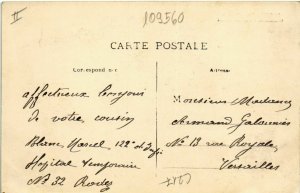 II
109560
CARTE POSTALE
Correspondance
Adresse
affectueux bonjour
de votre cousin
Blanc Marcel 122e d'Inf
Hopital Temporaire
No 32 Rodez
Monsieur
Armand
No 13 rue Royale
Versailles